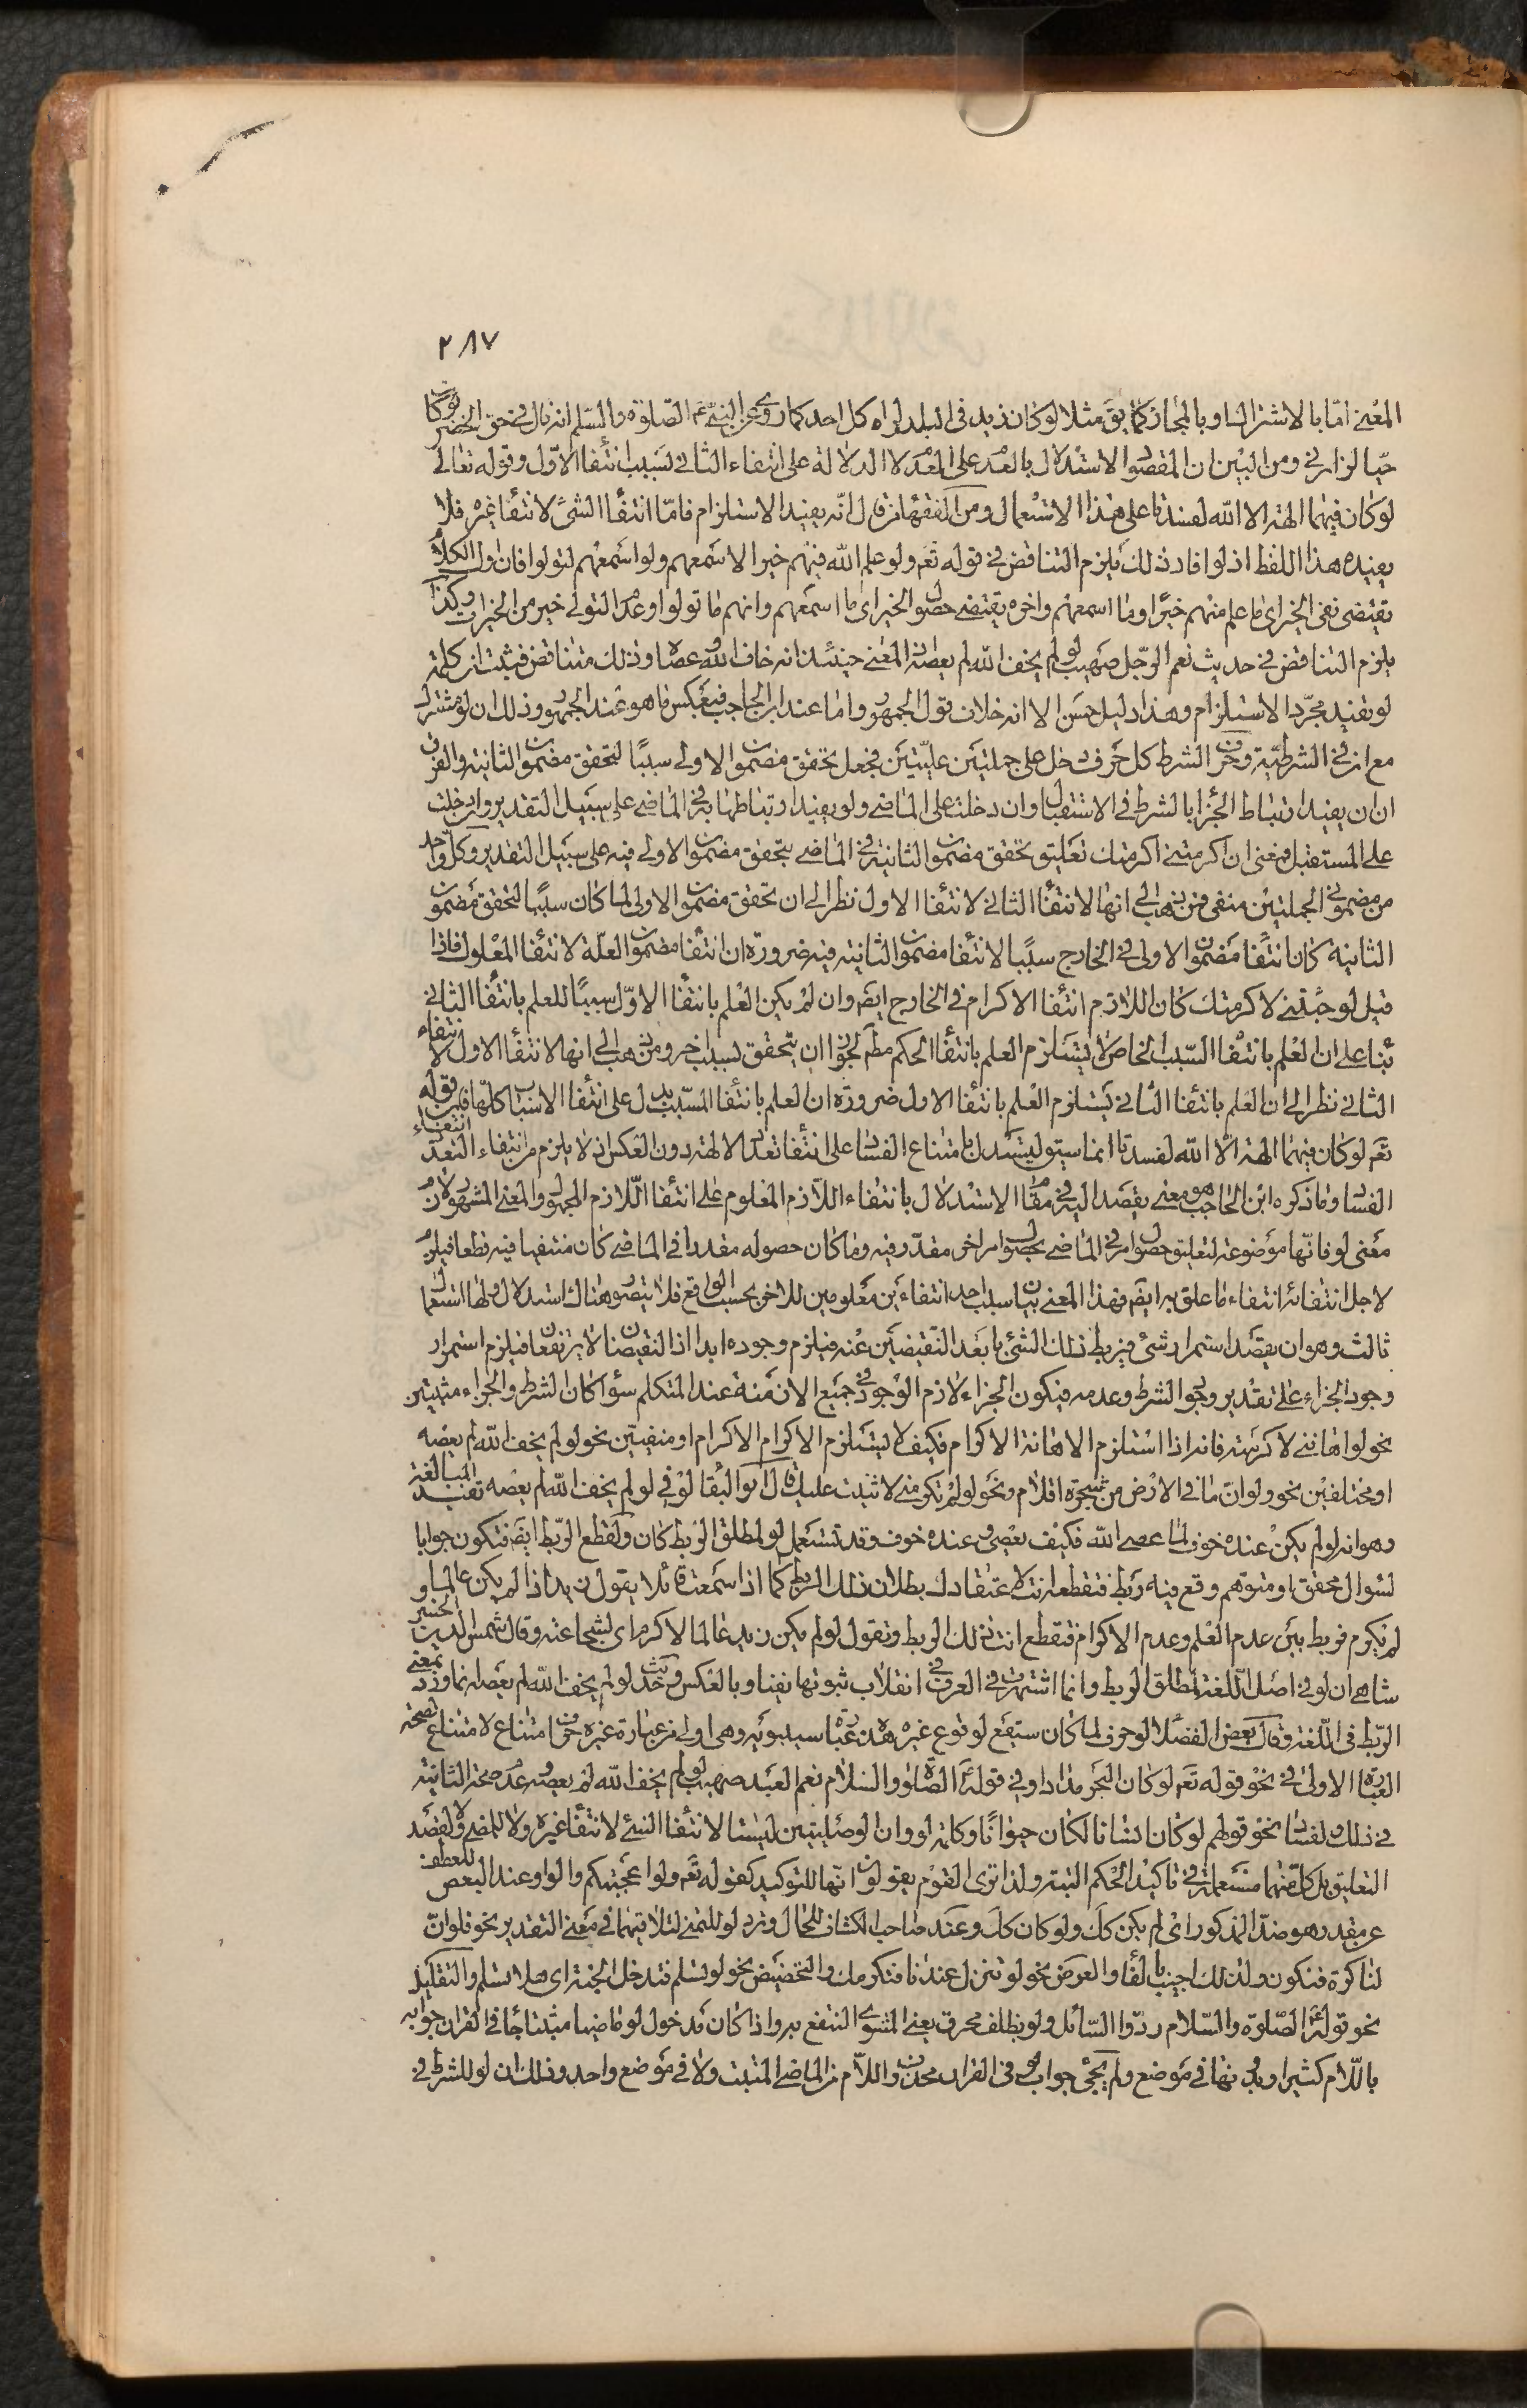 ٢٨٧
المعنى اما بالاشتراك او بالمجاز كما يق مثلا لو كان زيد فى البلد لراه كل احد كما روى عن النبى عم الصلوة والسلم انه قال فى حق الخضر لو كان
حيا لزارنى ومن البين ان المقصود الاستدلال بالعدم على العدم لا الدلالة على انتفاء الثانى بسبب انتفاء الاول وقوله تعالى
لو كان فيهما الهة الا الله لفسدتا على هذا الاستعمال ومن الفقهاء من قال انه يفيد الاستلزام فاما انتفاء الشئ لانتفاء غيره فلا
يفيده هذا اللفظ اذ لو افاد ذلك يلزم التناقض فى قوله تعم ولو علم الله فيهم خيرا لاسمعهم ولو اسمعهم لتولوا فان اول الكلام
يقتضى نفى الخير اى ما علم منهم خيرا وما اسمعهم واخره يقتضى حصول الخير اى ما اسمعهم وانهم ما تولوا وعدم التولى خير من الخيرات وكذا
يلزم التناقض فى حديث نعم الرجل صهيب لو لم يخف الله لم يعصه لان المعنى حينئذ انه خاف الله وعصاه وذلك متناقض فيثبت ان كلمة
لو تفيد مجرد الاستلزام وهذا دليل حسن الا انه خلاف قول الجمهور واما عند ابن الحاجب فبعكس ما هو عند الجمهور وذلك ان لو مشترك
مع ان فى الشرطية وحرف الشرط كل حرف دخل على جملتين فعليتين فجعل تحقق مضمون الاولى سببا لتحقق مضمون الثانية والفرق
ان ان يفيد ارتباط الجزاء بالشرط فى الاستقبال وان دخلت على الماضى ولو يفيد ارتباطها به فى الماضى على سبيل التقدير وان دخلت
على المستقبل فمعنى ان اكرمتنى اكرمتك تعليق تحقق مضمون الثانية فى الماضى بتحقق مضمون الاولى فيه على سبيل التقدير وكل واحد
من مضمونى الجملتين منفى فمن ذهب الى انها لانتفاء الثانى لانتفاء الاول نظر الى ان تحقق مضمون الاولى لما كان سببا لتحقق مضمون
الثانية كان انتفاء مضمون الاولى فى الخارج سببا لانتفاء مضمون الثانية فيه ضرورة ان انتفاء مضمون العلة لانتفاء المعلول فاذا
قيل لو جئتنى لاكرمتك كان اللازم انتفاء الاكرام فى الخارج ايضم وان لم يكن العلم بانتفاء الاول سببا للعلم بانتفاء الثانى
بناء على ان العلم بانتفاء السبب الخاص لا يستلزم العلم بانتفاء الحكم مطم لجواز ان يتحقق لسبب اخر ومن ذهب الى انها لانتفاء الاول لانتفاء
الثانى نظر الى ان العلم بانتفاء الثانى يستلزم العلم بانتفاء الاول ضرورة ان العلم بانتفاء المسبب يدل على انتفاء الاسباب كلها فان قوله
تعم لو كان فيهما الهة الا الله لفسدتا انما سيق ليستدل بامتناع الفساد على انتفاء تعدد الالهة دون العكس اذ لا يلزم من انتفاء التعدد انتفاء
الفساد وما ذكره ابن الحاجب هو معنى يقصد اليه فى مقام الاستدلال بانتفاء اللازم المعلوم على انتفاء اللازم المجهول والمعنى المشهور لان
معنى لو فانها موضوعة لتعليق حصول امر فى الماضى بحصول امر اخر مقدر فيه وما كان حصوله مقدرا فى الماضى كان منتفيا فيه قطعا فيلزم
لاجل انتفائه انتفاء ما علق به ايضم فهذا المعنى بيان سبب احد انتفاءين معلومين للاخر بحسب الواقع فلا يتصور هناك استدلال ولها استعمال
ثالث وهو ان يقصد استمرار شئ فيربط ذلك الشئ بابعد النقيضين عنه فيلزم وجوده ابدا اذ النقيضان لا يرتفعان فيلزم استمرار
وجود الجزاء على تقدير وجود الشرط وعدمه فيكون الجزاء لازم الوجود فى جميع الازمنة عند المتكلم سواء كان الشرط والجزاء مثبتين
نحو لو اهاننى لاكرمته فانه اذا استلزم الاهانة الاكرام فكيف لا يستلزم الاكرام الاكرام او منفيين نحو لو لم يخف الله لم يعصه
او مختلفين نحو ولو ان ما فى الارض من شجرة اقلام ونحو لو لم تكرمنى لاثنيت عليك قال ابو البقا لو فى لو لم يخف الله لم يعصه تفيد المبالغة
وهو انه لو لم يكن عنده خوف لما عصى الله فكيف يعصى وعنده خوف وقد تستعمل لو لمطلق الربط كان ولقطع الربط ايضم فتكون جوابا
لسؤال محقق او متوهم وقع فيه ربط فتقطعه انت لاعتقادك بطلان ذلك الربط كما اذا سمعت قائلا يقول زيد اذا لم يكن عالما لم
لم يكرم فربط بين عدم العلم وعدم الاكرام فتقطع انت ذلك الربط وتقول لو لم يكن زيد عالما لاكرم اى لشجاعته وقال شمس الدين الخسر
شاهى ان لو فى اصل اللغة لمطلق الربط وانما اشتهرت فى العرف فى انقلاب ثبوتها نفيا وبالعكس وحديث لو لم يخف الله لم يعصه انما ورد بمعنى
الربط فى اللغة وقال بعض الفضلاء لو حرف لما كان سيقع لوقوع غيره هذه عبارة سيبويه وهى اولى من عبارة غيره حرف امتناع لامتناع لصحة
العبارة الاولى فى نحو قوله تعم لو كان البحر مدادا وفى قوله الصلوة والسلام نعم العبد صهيب لو لم يخف الله لم يعصه وعدم صحة الثانية
فى ذلك ولفساد نحو قولهم لو كان انسانا لكان حيوانا وكلمة لو وان الوصليتين ليستا لانتفاء الشئ لانتفاء غيره ولا للمضى ولا لقصد
التعليق بل كل منهما مستعملة فى تاكيد الحكم البتة ولذا ترى القوم يقولون انها للتوكيد كقوله تعم ولو اعجبتكم والواو عند البعض للعطف
على مقدر هو ضد المذكور اى لم يكن كك ولو كان كك وعند صاحب الكشاف للحال وترد لو للتمنى لتلاقيهما فى معنى التقدير نحو فلو ان
لنا كرة فنكون ولذلك اجيب بالفاء والعرض نحو لو تنزل عندنا فنكرمك والتحضيض نحو لو تسلم فتدخل الجنة اى هلا تسلم والتقليل
نحو قوله الصلوة والسلام ردوا السائل ولو بظلف محرق يعنى المشوى المنتفع به واذا كان مدخول لو ماضيا مثبتا جاء فى القران جوابه
باللام كثيرا وبدونها فى موضع ولم يجئ جواب لو فى القران محذوف اللام من الماضى المثبت ولا فى موضع واحد وذلك ان لو للشرط فى